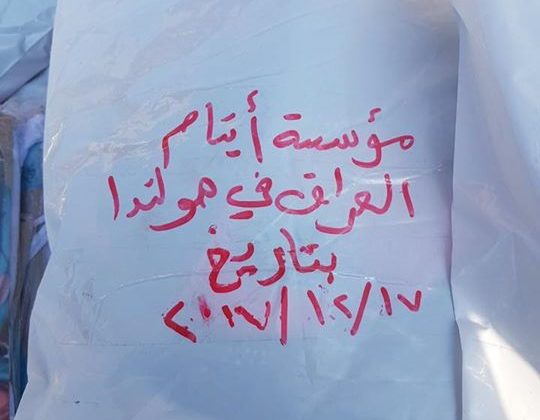 مؤسسة أيتام
العراق في هولندا
بتاريخ
٢٠١٧/١٢/١٧